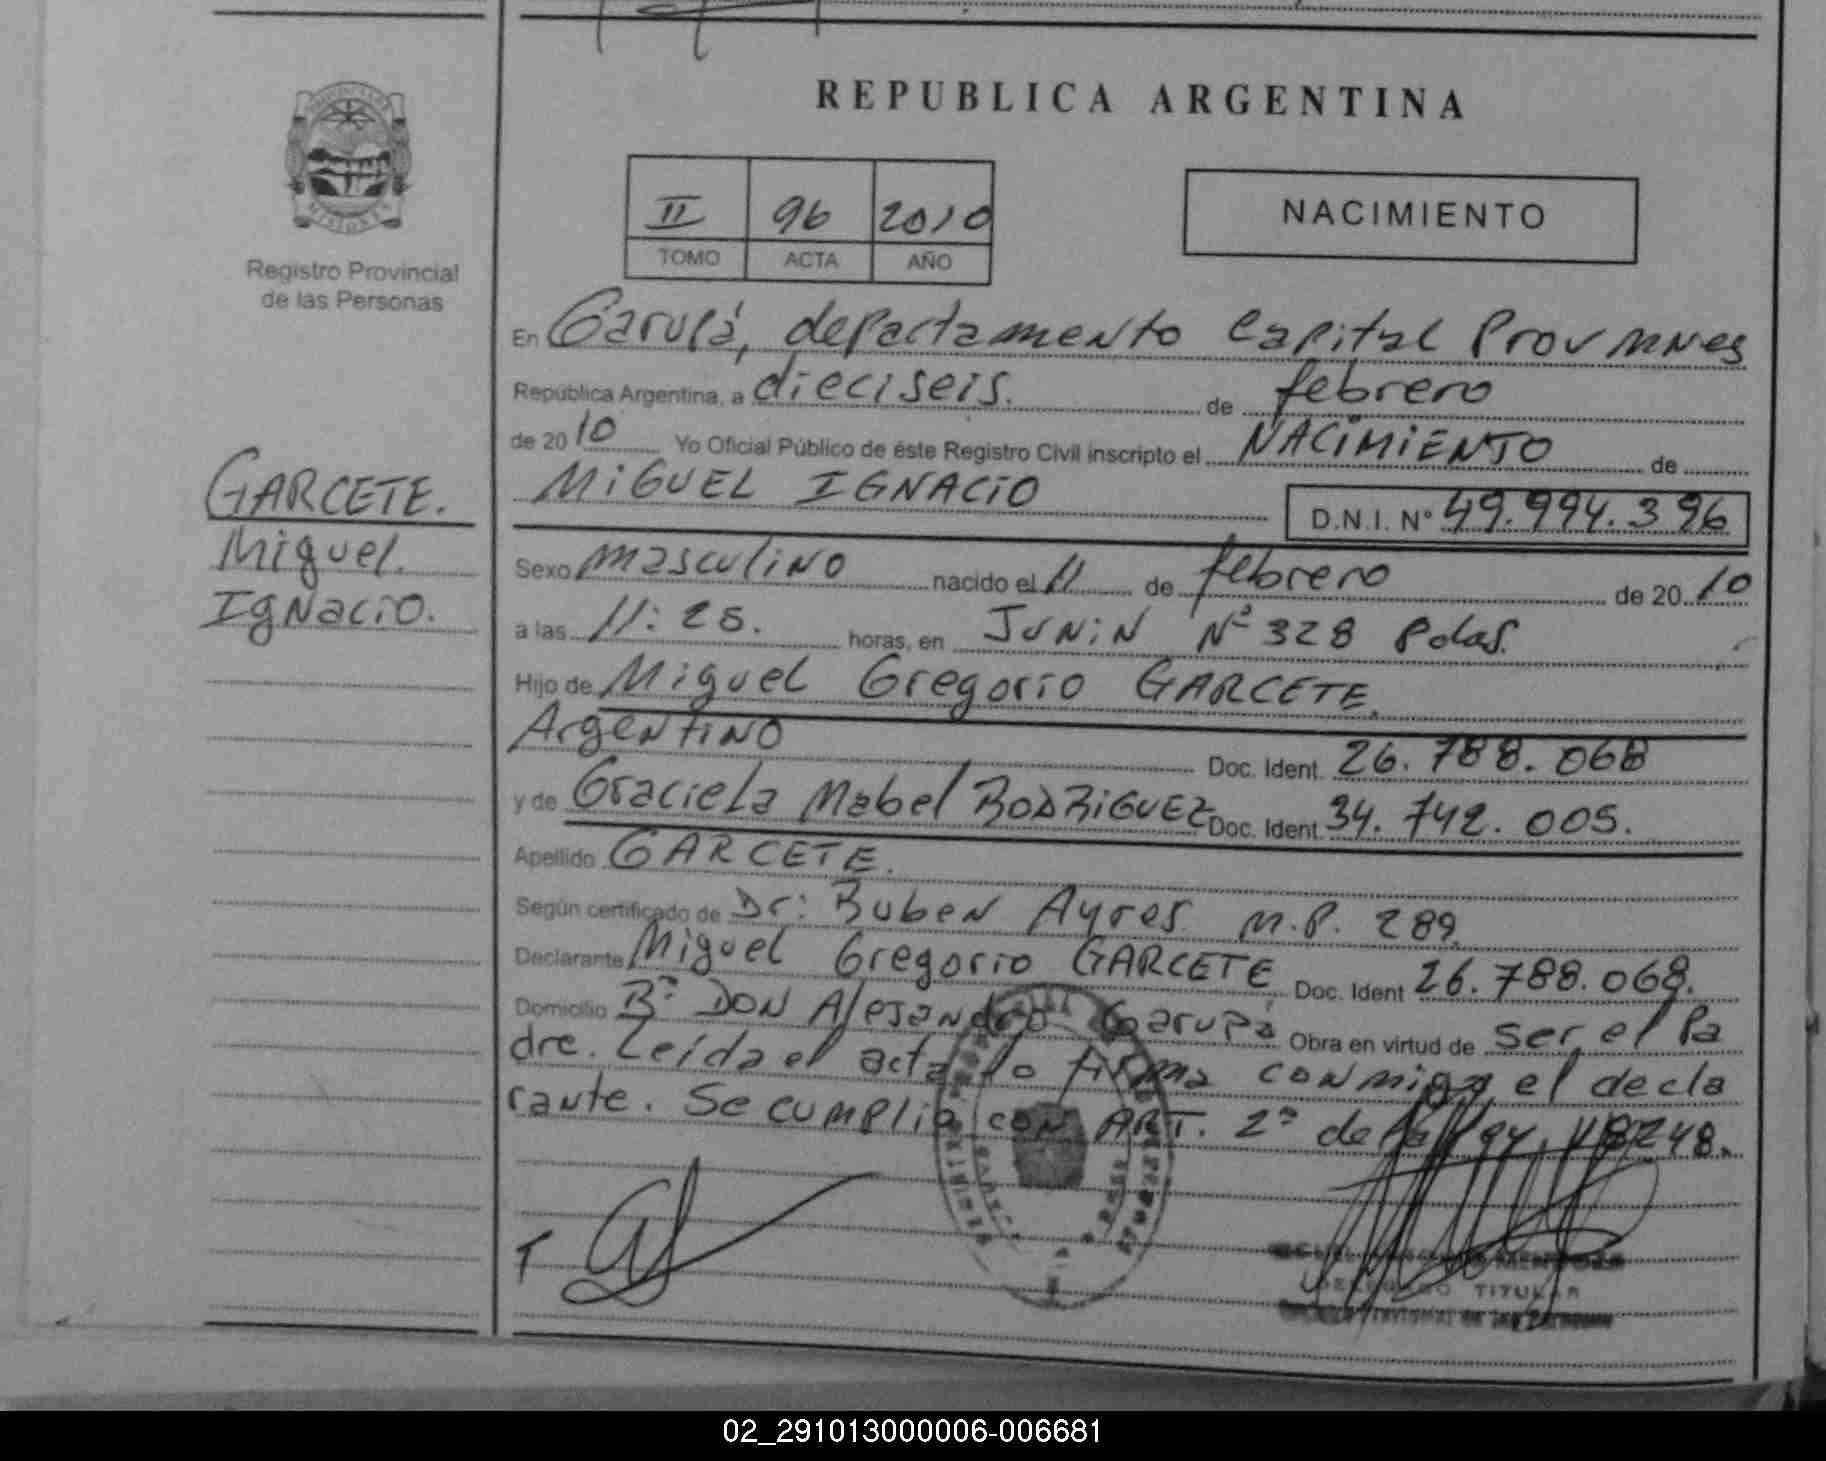 REPUBLICA ARGENTINA
II 96 2010
TOMO ACTA AÑO
NACIMIENTO
Registro Provincial
de las Personas
GARCETE.
Miguel.
Ignacio.
En Garupá, departamento Capital Prov Mnes
República Argentina, a dieciseis. de febrero
de 2010 Yo Oficial Público de éste Registro Civil inscripto el NACIMIENTO de
MIGUEL IGNACIO D.N.I. Nº 49.994.396
Sexo masculino nacido el 11 de febrero de 2010
a las 11:25. horas, en JUNIN Nº 328 Pdas.
Hijo de Miguel Gregorio GARCETE.
Argentino Doc. Ident. 26.788.068
y de Graciela Mabel RODRIGUEZ Doc. Ident. 34.742.005.
Apellido GARCETE.
Según certificado de Dr: Ruben Ayres M.P. 289.
Declarante Miguel Gregorio GARCETE Doc. Ident 26.788.068.
Domicilio Bº DON Alejandro Garupá Obra en virtud de ser el Pa
dre. Leída el acta lo firma conmigo el decla
rante. Se cumplió con ART. 2º de la Ley. 18248.
TITULAR
02_291013000006-006681